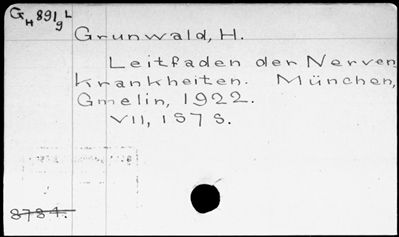 GH 891 L
g
Grunwald, H.
Leitfaden der Nerven
krankheiten. München,
Gmelin, 1922.
VII, 157 S.
8784.